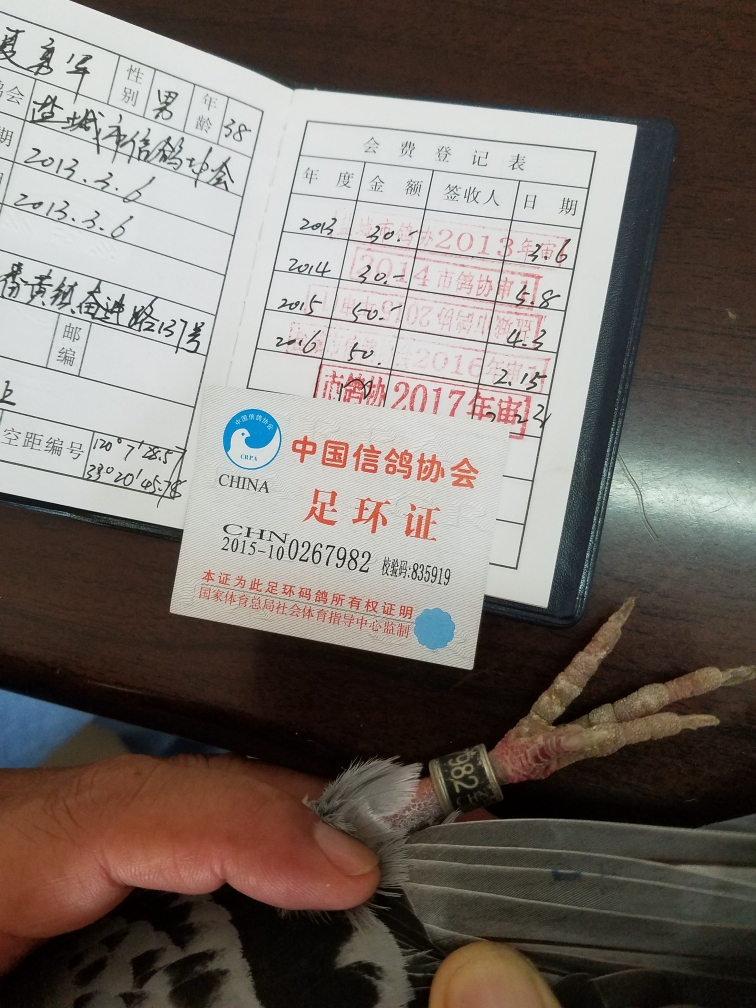 夏 军 性别 男 年龄 38
盐城市信鸽协会
2013.3.6
2013.3.6
番黄镇奋进路137号
邮编
空距编号 120°7′28.57
33°20′45.78
会费登记表
年度 金额 签收人 日期
2013 30.- 盐城市鸽协2013年审 3.6
2014 30.- 2014市鸽协审 5.8
2015 50.- 4.3
2016 50. 2016年审 2.15
市鸽协2017年审
中国信鸽协会
CRPA
中国信鸽协会
CHINA
足环证
CHN
2015-10 0267982 校验码:835919
本证为此足环码鸽所有权证明
国家体育总局社会体育指导中心监制
982